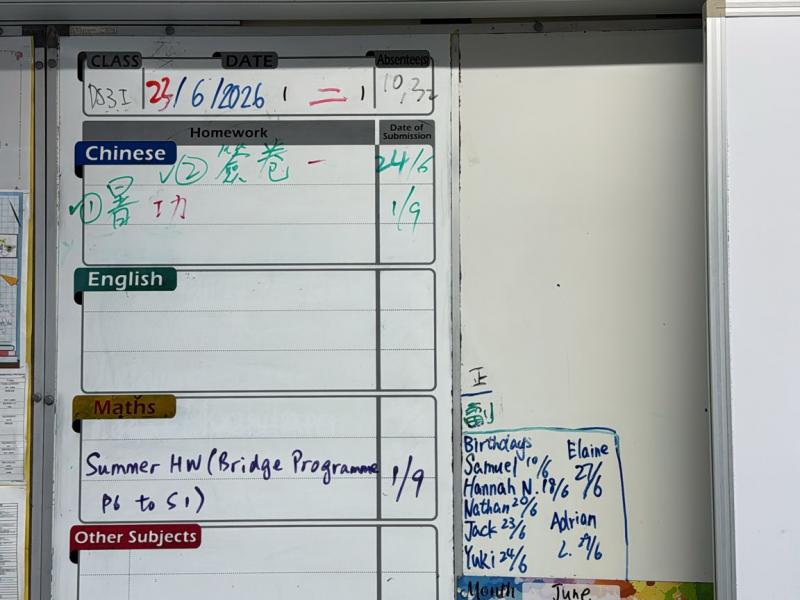 CLASS DATE Absentee(s)
DS3I 23/6/2026 (二) 10,32
Homework Date of Submission
Chinese
✓② 簽卷一 24/6
✓① 暑功 1/9
English
Maths
Summer HW (Bridge Programme 1/9
P6 to S1)
Other Subjects
正
副
Birthdays
Samuel 10/6
Hannah N. 18/6
Nathan 20/6
Jack 23/6
Yuki 24/6
Elaine
27/6
Adrian
L. 29/6
Month June